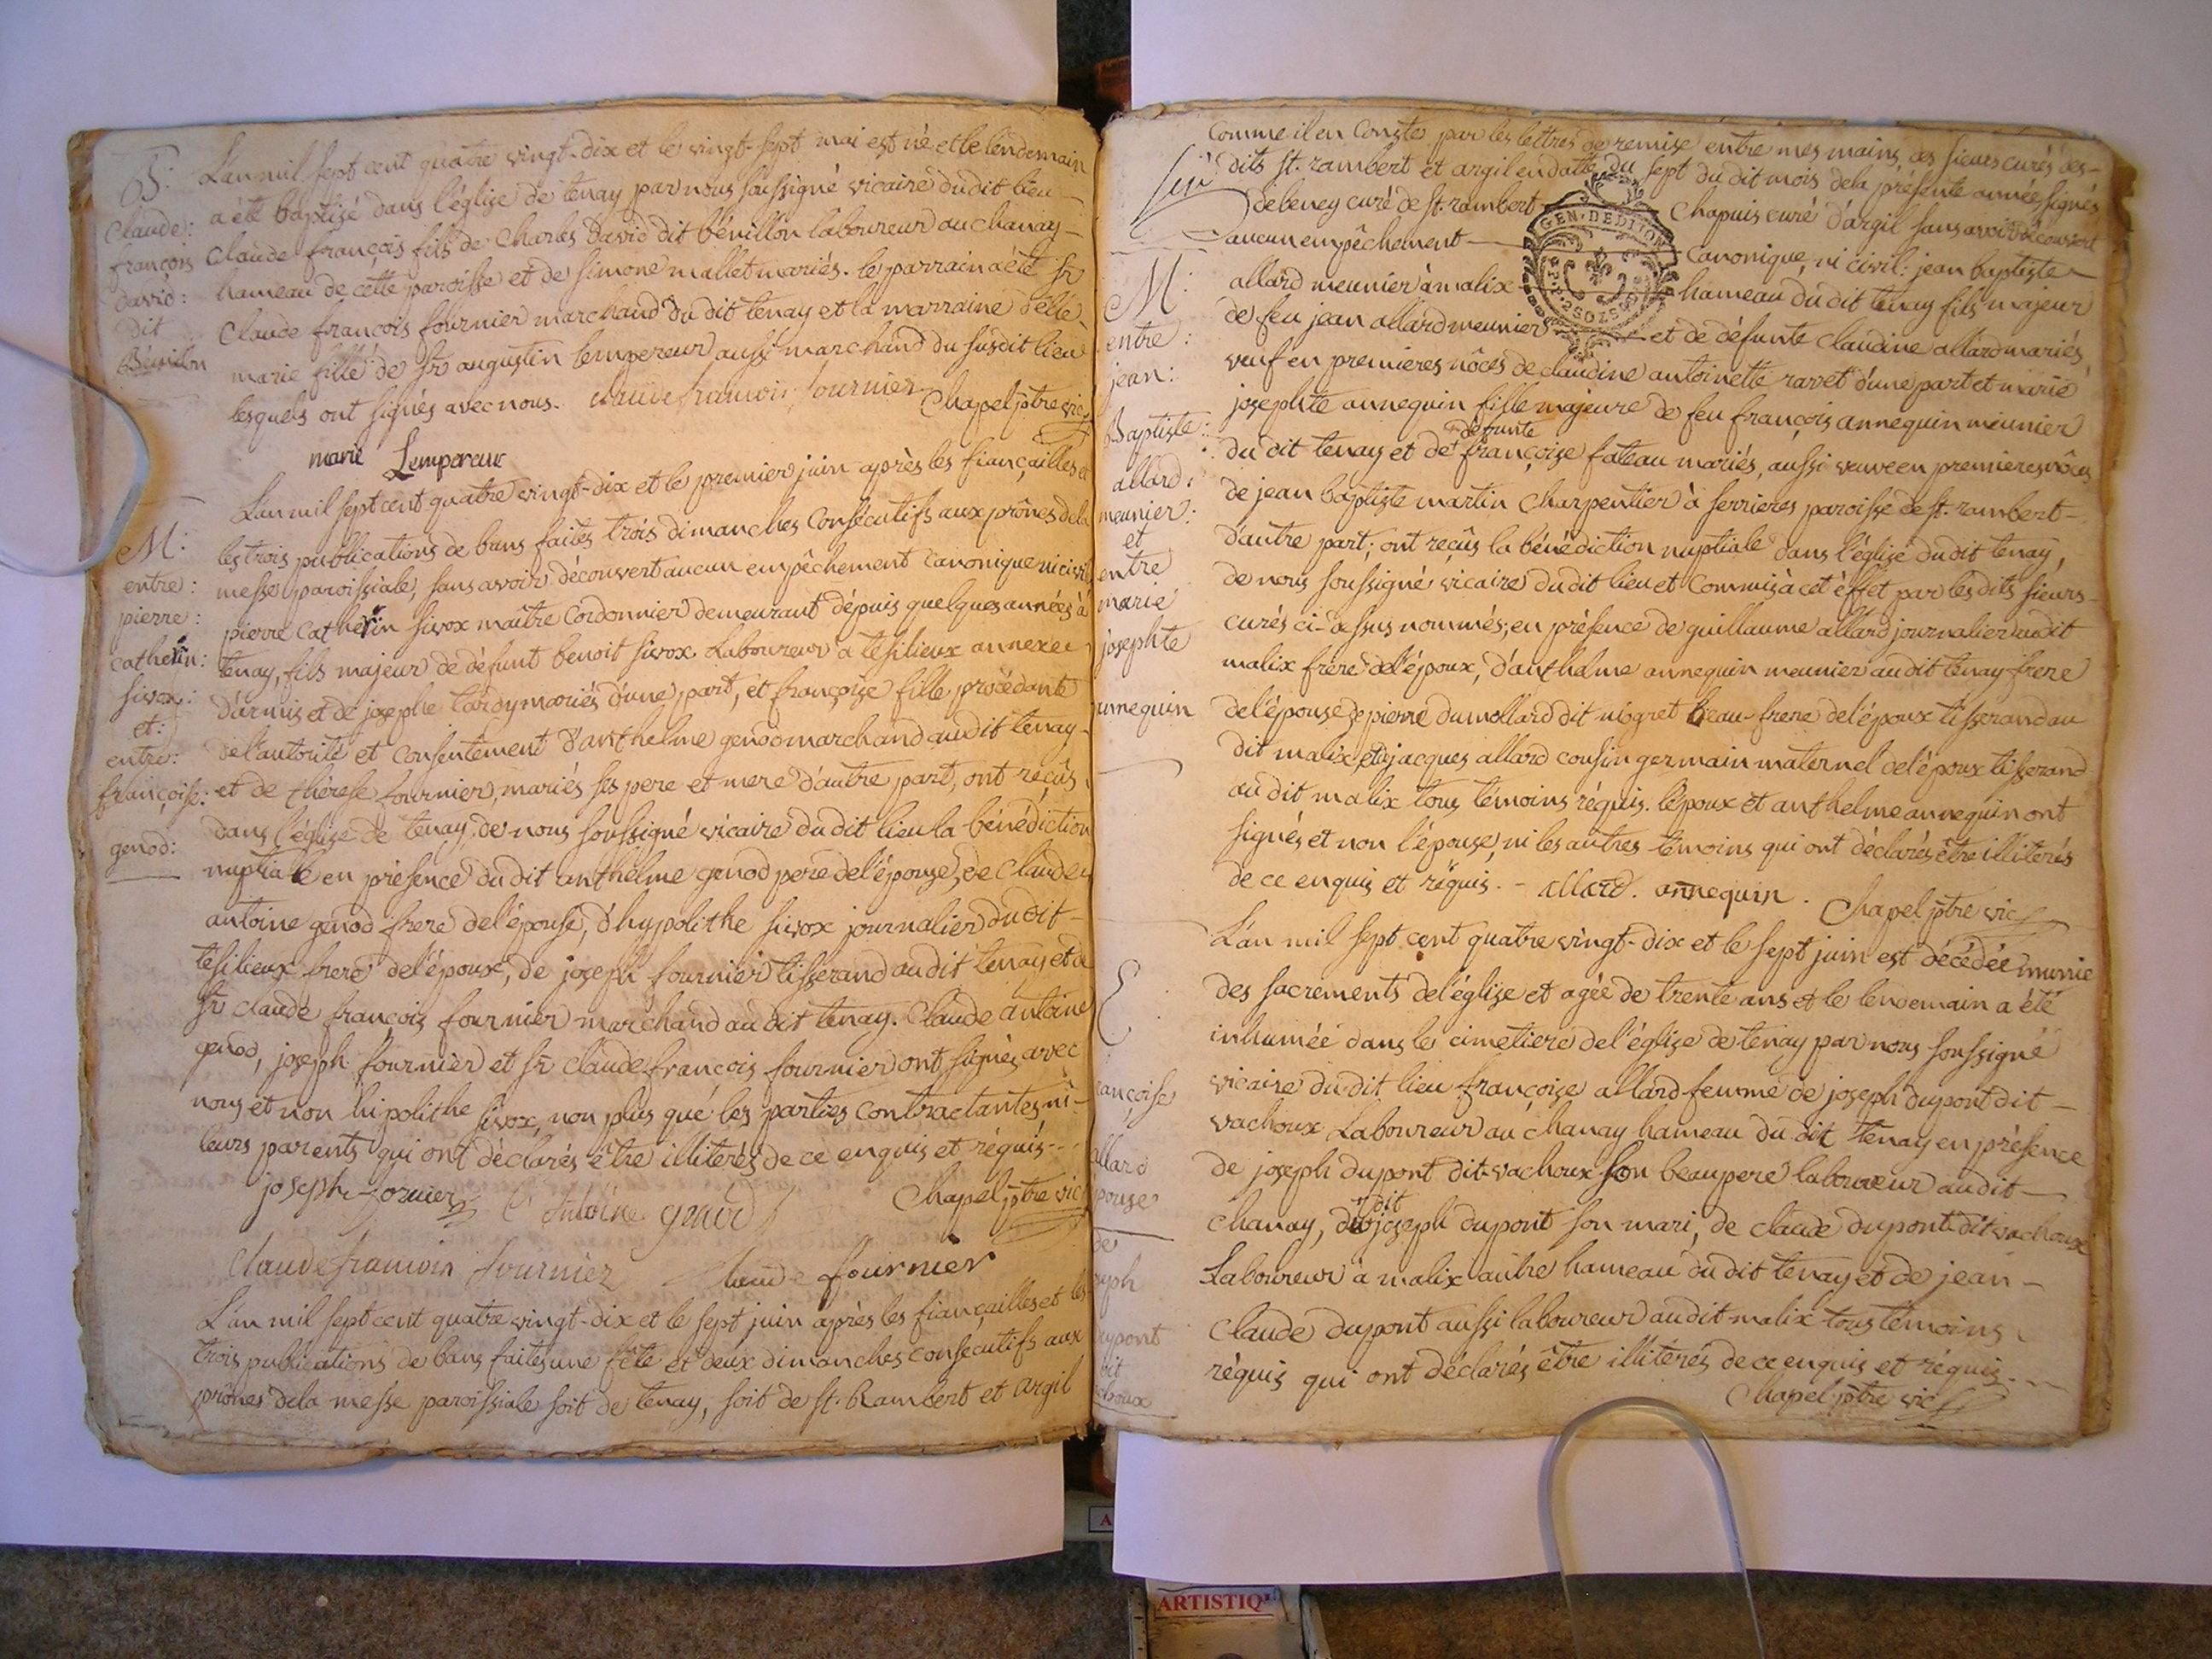 B:
Claude:
françois
david:
dit
Bénilon
L'an mil sept cent quatre vingt-dix et le vingt-sept mai est né et le lendemain
a été baptizé dans l'église de tenay par nous soussigné vicaire du dit lieu
Claude françois fils de Charles david dit bénillon laboureur au chanay
hameau de cette paroisse et de simone mallet mariés. le parrain a été sr
Claude françois fournier marchand du dit tenay et la marraine délle
marie fille de sr augustin lempereur aussi marchand du susdit lieu
lesquels ont signés avec nous. claude francois fournier Chapel ptre vic
marie Lempereur
M:
entre:
pierre:
catherin:
sivox:
et:
entre:
françoise:
genod:
L'an mil sept cent quatre vingt-dix et le premier juin après les fiançailles et
les trois publications de bans faites trois dimanches consécutifs aux prônes de la
messe paroissiale, sans avoir découvert aucun empêchement canonique ni civil
pierre catherin sivox maître cordonnier demeurant dépuis quelques années à
tenay, fils majeur de défunt benoit sivox Laboureur à tesilieux annexe
d'armis et de josephe tardy mariés d'une part, et françoise fille procédante
de l'autorité et consentement d'anthelme genod marchand audit tenay
et de thérese fournier, mariés ses pere et mere d'autre part, ont reçûs
dans l'église de tenay, de nous soussigné vicaire du dit lieu la bénédiction
nuptiale en présence du dit anthelme genod pere de l'épouse, de Claude
antoine genod frere de l'épouse, d'hypolithe sivox journalier du dit
tesilieux frere de l'époux, de joseph fournier tisserand audit tenay et de
sr claude françois fournier marchand au dit tenay. Claude antoine
genod, joseph fournier et sr claude françois fournier ont signés avec
nous et non hipolithe sivox, non plus que les parties contractantes ni
leurs parents qui ont déclarés être illitérés de ce enquis et réquis
joseph fornier C antoine genod Chapel ptre vic
Claude francoin fournier Claude fournier
L'an mil sept cent quatre vingt-dix et le sept juin après les fiançailles et les
trois publications de bans faites une fête et deux dimanches consecutifs aux
prônes de la messe paroissiale soit de tenay, soit de st. Rambert et argil
comme il en conste par les lettres de remise entre mes mains des sieurs curés des
dits st. rambert et argil en datte du sept du dit mois de la présente année signés
debeney curé de st. rambert Chapuis curé d'argil sans avoir découvert
aucun empêchement canonique ni civil: jean baptiste
GEN. DE DIJON
allard meunier à malix hameau du dit tenay fils majeur
de feu jean allard meunier et de défunte claudine allard mariés
veuf en premieres nôces de claudine antoinette ravet d'une part et marie
josephte annequin fille majeure de feu françois annequin meunier
du dit tenay et de défunte françoise fateau mariés, aussi veuve en premieres nôces
de jean baptiste martin charpentier à serrieres paroisse de st. rambert
d'autre part; ont reçûs la bénédiction nuptiale dans l'église du dit tenay,
de nous soussigné vicaire du dit lieu et commis à cet effet par les dits sieurs
curés ci-dessus nommés; en présence de guillaume allard journalier audit
malix frère de l'époux, d'anthelme annequin meunier au dit tenay frere
de l'épouse, de pierre dumollard dit nogret beau-frere de l'époux tisserand au
dit malix, et de jacques allard cousin germain maternel de l'époux tisserand
au dit malix tous témoins réquis. l'époux et anthelme annequin ont
signés et non l'épouse, ni les autres témoins qui ont déclarés être illitérés
de ce enquis et réquis. allard. annequin. Chapel ptre vic
M:
entre:
jean:
Baptiste:
allard:
meunier:
et
entre
marie
josephte
annequin
L'an mil sept cent quatre vingt-dix et le sept juin est décédée munie
des sacrements de l'église et agée de trente ans et le lendemain a été
inhumée dans le cimetiere de l'église de tenay par nous soussigné
vicaire du dit lieu françoise allard femme de joseph dupont dit
vachoux Laboureur au chanay hameau du dit tenay en présence
de joseph dupont dit vachoux son beau pere laboureur audit
chanay, du dit joseph dupont son mari, de claude dupont dit vachoux
Laboureur à malix autre hameau du dit tenay et de jean
claude dupont aussi laboureur audit malix tous témoins
réquis qui ont déclarés être illitérés de ce enquis et réquis.
Chapel ptre vic
E
ançoise
allard
épouse
de
seph
dupont
dit
achoux
ARTISTIQ